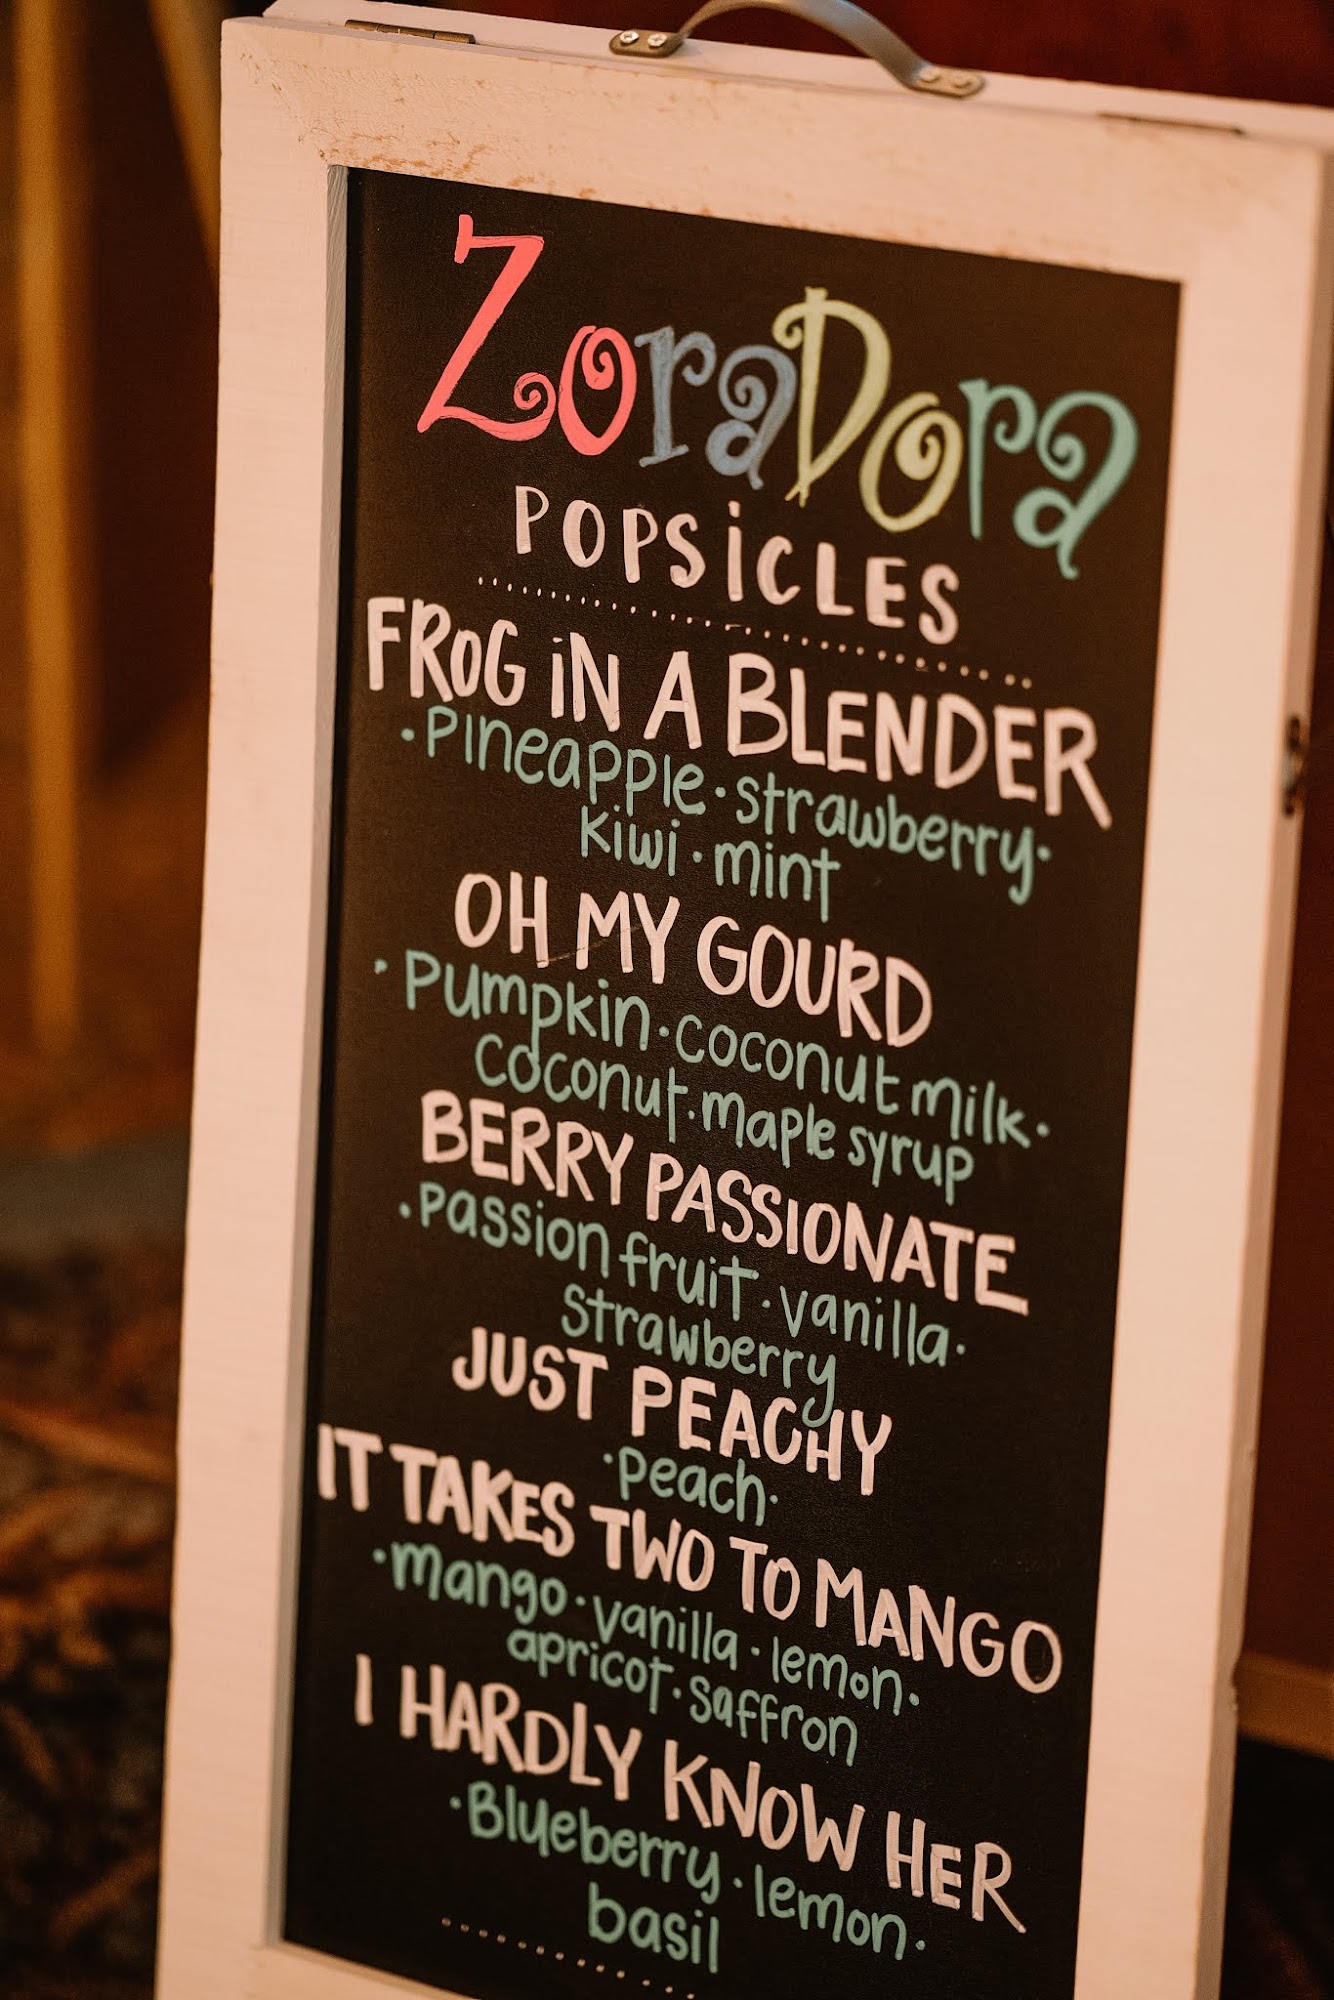 ZoraDora
POPSiCLES
FROG iN A BLENDER
·Pineapple·strawberry·
kiwi·mint
OH MY GOURD
·Pumpkin·coconut milk·
Coconut·maple syrup
BERRY PASSIONATE
·Passion fruit·vanilla·
Strawberry
JUST PEACHY
·peach·
IT TAKES TWO TO MANGO
·mango·vanilla·lemon·
apricot·saffron
I HARDLY KNOW HER
·Blueberry·lemon·
basil